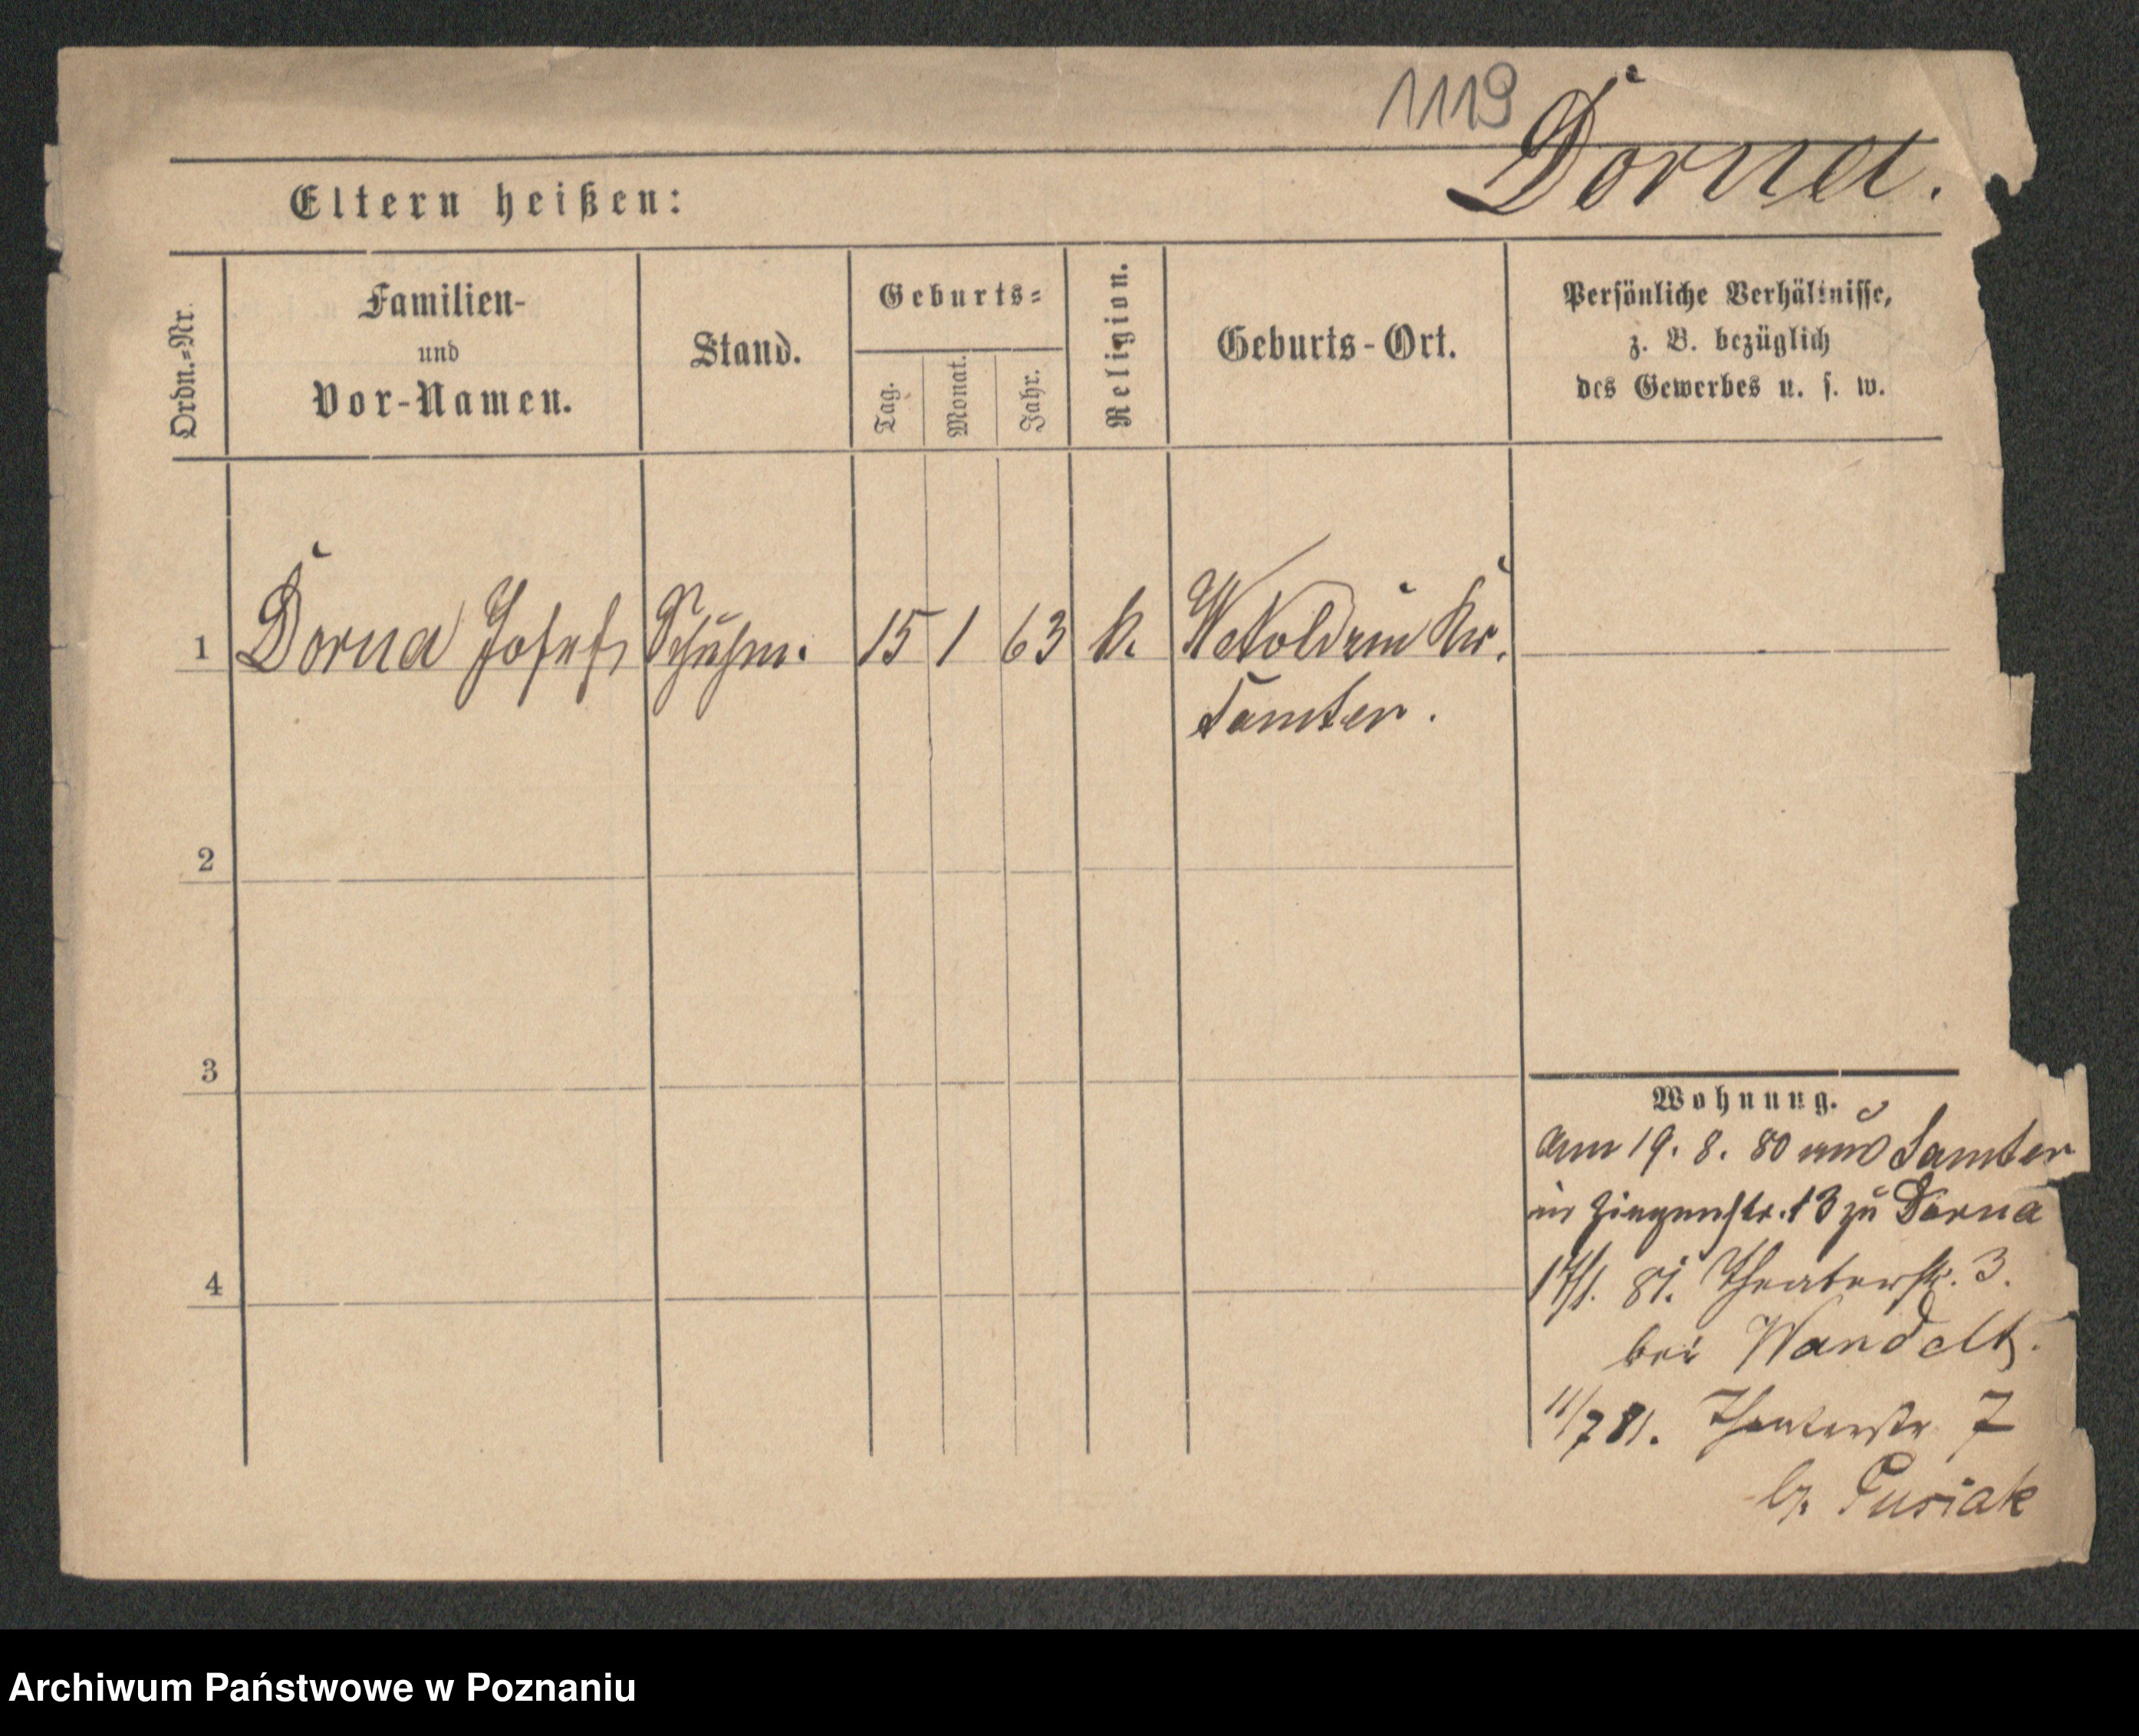 1119
Dorna.
Eltern heißen:
Ordn.-Nr.
Familien-
und
Vor-Namen.
Stand.
Geburts-
Tag.
Monat.
Jahr.
Religion.
Geburts-Ort.
Persönliche Verhältnisse,
z. B. bezüglich
des Gewerbes u. s. w.
1 Dorna Josef Schuhm. 15 1 63 k. Kr.
Samter.
2
3
4
Wohnung.
Am 19. 8. 80 aus Samter
in Ziegenstr. 13 zu Dorna
17/1. 81. Theaterstr. 3.
bei Wandelt.
11/7 81. Theaterstr 7
b. Pusiak
Archiwum Państwowe w Poznaniu